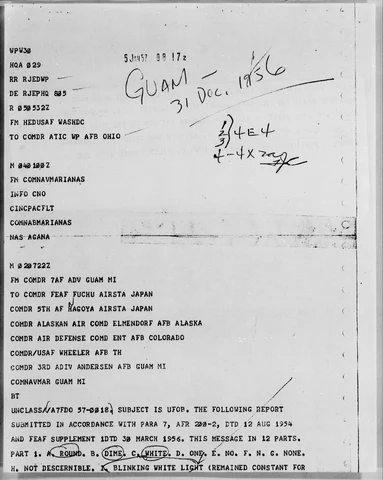 WPW30
5 JAN 57 08 17z
HQA 029
RR RJEDWP
DE RJEPHQ 805
R 050532Z
FM HEDUSAF WASHDC
TO COMDR ATIC WP AFB OHIO
GUAM —
31 DEC. 1956
1)
2) 4E4
3)
4-4X
M 040100Z
FM COMNAVMARIANAS
INFO CNO
CINCPACFLT
COMNABMARIANAS
NAS AGANA
M 020722Z
FM COMDR 7AF ADV GUAM MI
TO COMDR FEAF FUCHU AIRSTA JAPAN
COMDR 5TH AF NAGOYA AIRSTA JAPAN
COMDR ALASKAN AIR COMD ELMENDORF AFB ALASKA
COMDR AIR DEFENSE COMD ENT AFB COLORADO
COMDR/USAF WHEELER AFB TH
COMDR 3RD ADIV ANDERSEN AFB GUAM MI
COMNAVMAR GUAM MI
BT
UNCLASS//A7FDO 57-0018) SUBJECT IS UFOB. THE FOLLOWING REPORT
SUBMITTED IN ACCORDANCE WITH PARA 7, AFR 200-2, DTD 12 AUG 1954
AND FEAF SUPPLEMENT 1DTD 30 MARCH 1956. THIS MESSAGE IN 12 PARTS.
PART 1. A. ROUND. B. DIME. C. WHITE. D. ONE. E. NO. F. N. G. NONE.
H. NOT DESCERNIBLE. I. BLINKING WHITE LIGHT (REMAINED CONSTANT FOR